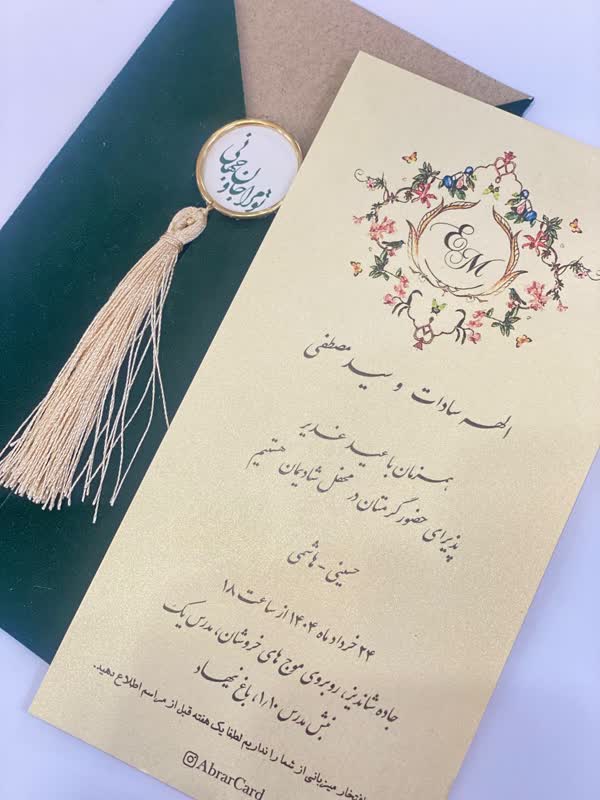 تو مرا جان و جهانی
EM
الهه سادات و سید مصطفی
همزمان با عید غدیر
پذیرای حضور گرمتان در محفل شادیمان هستیم
حسینی - هاشمی
۲۴ خرداد ماه ۱۴۰۴ از ساعت ۱۸
جاده شاندیز، روبروی موج های خروشان، مدرس یک
نبش مدرس ۱/۱۰، باغ نیهاد
افتخار میزبانی از شما را نداریم لطفا یک هفته قبل از مراسم اطلاع دهید.
AbrarCard